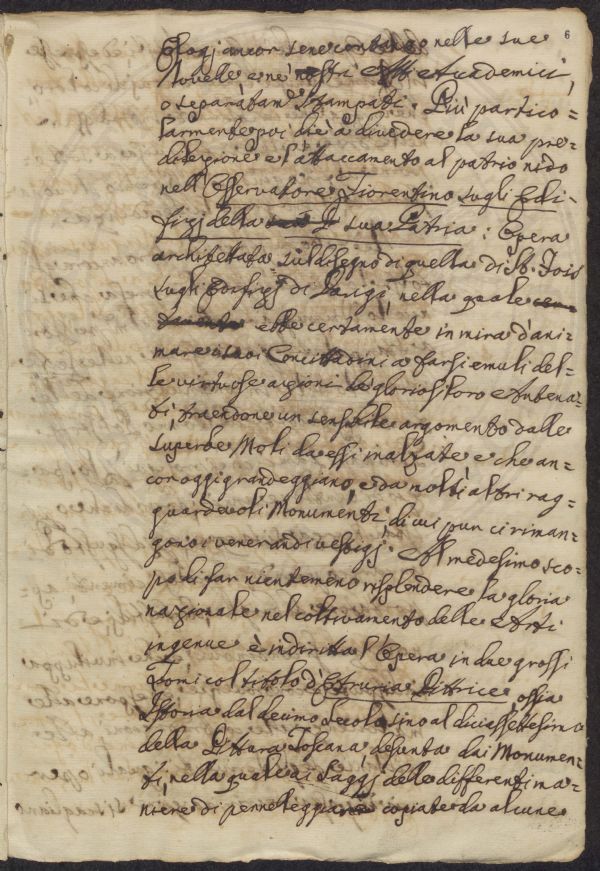 6
Elogj ancor sene contano nelle sue
Novelle e ne' nostri Atti Accademici,
o separatam.e Stampati. Più partico=
larmente poi diè a divedere la sua pre=
dilezione e l'attaccamento al patrio nido
nell'Osservatore Fiorentino sugli Edi-
fizj della sua Patria: Opera
architettata sul disegno di quella di St. Foix
sugli Edifizj di Parigi, nella quale
ebbe certamente in mira d'ani=
mare i suoi Concittadini a farsi emuli del=
le virtuose azioni de' gloriosi loro Antena=
ti, traendone un sensibile argomento dalle
superbe Moli da essi inalzate e che an=
cor oggi grandeggiano, e da molti altri rag=
guardevoli Monumenti, di cui pur ci riman=
gono i venerandi vestigj. Al medesimo sco=
po di far nientemeno risplendere la gloria
nazionale nel coltivamento delle Arti
ingenue è indiritta l'Opera in due grossi
Tomi col titolo d'Etruria Pittrice, ossia
Istoria dal decimo secolo sino al diciassettesimo
della Pittura Toscana desunta dai Monumen=
ti, nella quale ai Saggj delle differenti ma=
niere di pennelleggiare copiate da alcune